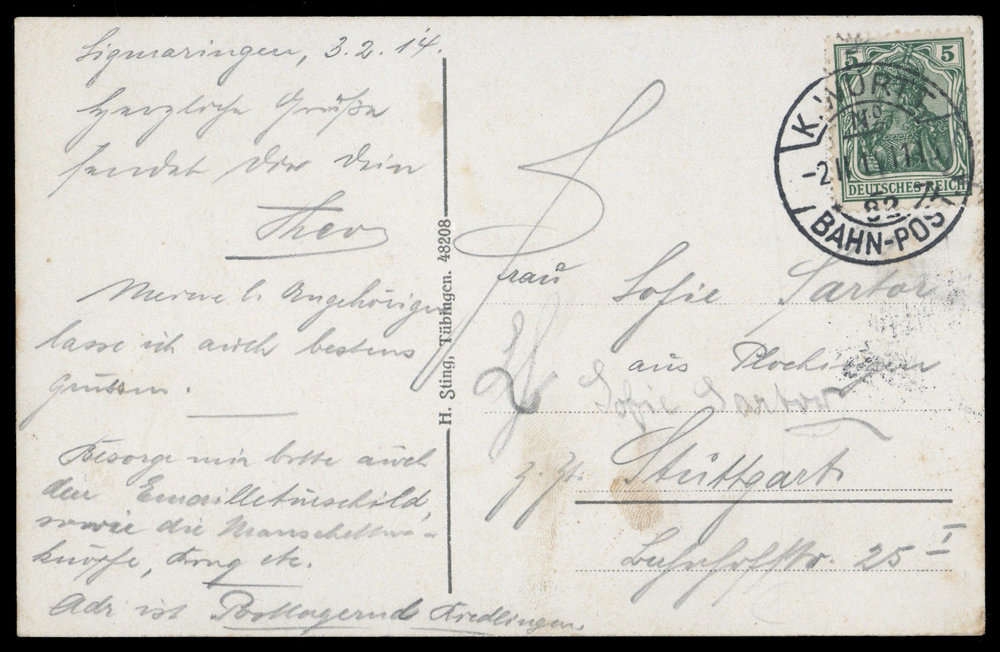 Sigmaringen, 3.2.14.
Herzliche Grüße
sendet Dir Dein
Theo
Meine l. Angehörigen
lasse ich auch bestens
Grüssen.
Besorge mir bitte auch
den Emailletürschild,
sowie die Manschetten-
knöpfe, Krag etc.
Adr ist Postlagernd Riedlingen.
H. Sting, Tübingen. 48208
5 5
DEUTSCHES REICH
K. WÜRTT.
BAHN-POST
Frau Sofie Sartor
aus Plochingen
Sofie Sartor
z. Zt. Stuttgart.
Bahnhofstr. 25 I